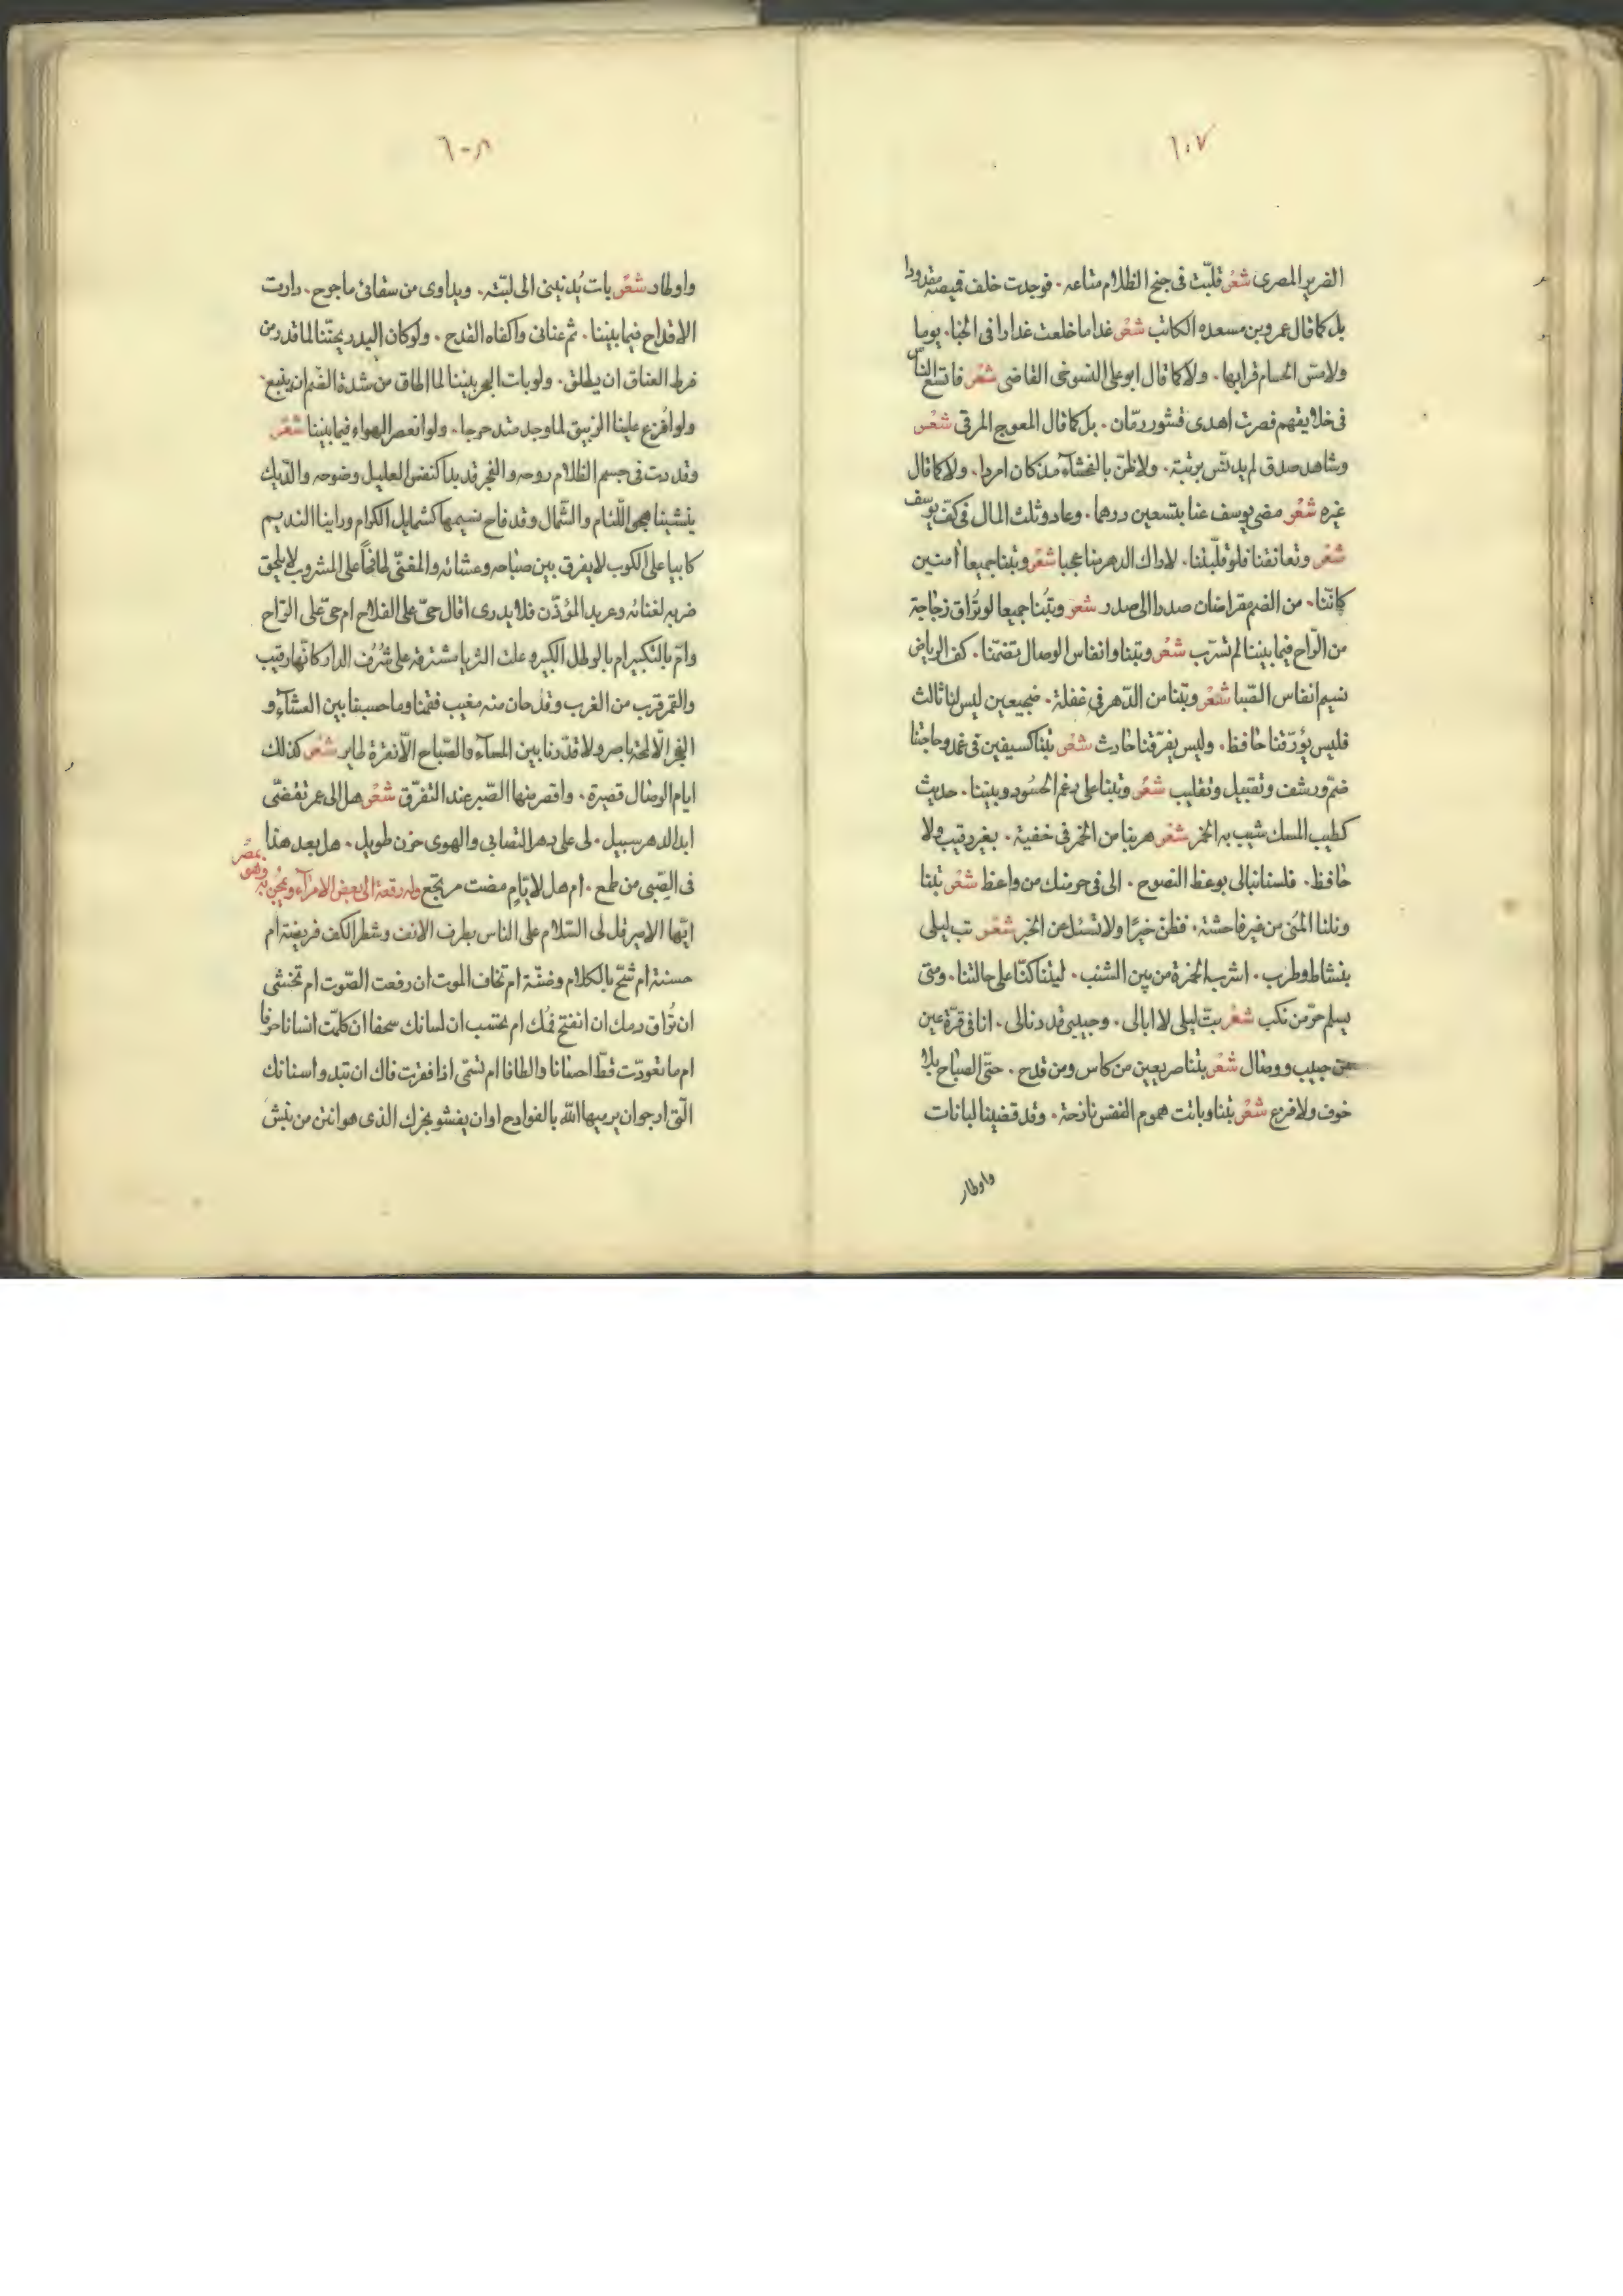 ٦٠٧
الضرير المصرى شعر قلبت فى جنح الظلام متاعه ۰ فوجدت خلف قميصه مقدودا
بل كما قال عمرو بن مسعده الكاتب شعر غداما خلعت غدارا فى الخنا ۰ يوما
ولامس الحسام قرابها ۰ ولا كما قال ابو على التنوخى القاضى شعر فاتسع الناس
فى خلايقهم فصرت اهدى قشور رمّان ۰ بل كما قال المعوج المرقى شعر
وشاهد صدق لم يدنّس بريبة ۰ ولا ظنّ بالفحشآء مذ كان امردا ۰ ولا كما قال
غيره شعر مضى يوسف عنا بتسعين درهما ۰ وعاد وثلث المال فى كفّ يوسف
شعر وتعانقنا فلو قلّبتنا ۰ لاراك الدهر منا عجبا شعر وبتنا جميعا امنين
كانّنا ۰ من الضم مقراضان صدرا الى صدر شعر وبتنا جميعا لو تراق زجاجة
من الرّاح فيما بيننا لم تسرّب شعر وبتنا وانفاس الوصال تضمّنا ۰ كف الرياض
نسيم انفاس الصّبا شعر وبتنا من الدّهر فى غفلة ۰ ضجيعين ليس لنا ثالث
فليس يؤرّقنا حافظ ۰ وليس يفرّقنا حادث شعر بتنا كسيفين فى غمد وحاجتنا
ضمّ ورشف وتقبيل وتقليب شعر وبتنا على رغم الحسُود وبيننا ۰ حديث
كطيب المسك شيب به الخمر شعر هربنا من الخمر فى خفية ۰ بغير رقيب ولا
حافظ ۰ فلسنا نبالى بوعظ النصوح ۰ الى فى حرمنك من واعظ شعر بتنا
ونلنا المُنى من غير فاحشة ۰ فظن خيرًا ولا تسئل عن الخبر شعر تب ليلى
بنشاط وطرب ۰ اشرب الخمرة من بين الشنب ۰ ليتنا كنّا على حالتنا ۰ ومتى
يسلم حرّ من نكب شعر بتّ ليلى لا ابالى ۰ وحبيبى قد دنالى ۰ انا فى قرّة عين
من حبيب ووصال شعر بتنا صريعين من كاس ومن قدح ۰ حتّى الصباح بلا
خوف ولا فزع شعر بتنا وباتت هموم النفس نازحة ۰ وقد قضينا لبانات
واوطار
٦٠٨
واوطار شعر بات يُدنينى الى لبّته ۰ ويداوى من سقائى ما جرح ۰ دارت
الاقداح فيما بيننا ۰ ثم عنانى واكفاه القدح ۰ ولو كان البدر بجنّنا لما قدر من
فرط العناق ان يطلق ۰ ولو بات البحر بيننا لما اطاق من شدة الضّم ان ينبع ۰
ولو افُرغ علينا الزيبق لما وجد منه حرجا ۰ ولو انعصر الهواء فيما بيننا شعر
وقد دبت فى جسم الظلام روحه والفجر قد بدا كنفس العليل وضوحه والدّيك
ينشينا هجى اللّئام والشّمال وقد فاح نسيمها كشمايل الكرام وراينا النديم
كابيا على الكوب لا يفرق بين صباحه وعشائه والمغنّى طافحًا على المشروب لا يليق
ضربه لغنائه وعربد المؤذّن فلا يدرى اقال حىّ على الفلاح ام حىّ على الرّاح
وامّ بالتكبير ام بالرطل الكبير وعلت الثريا مشترقة على شُرُف الدار كانّها رقيب
والقمر قرب من الغرب وقد حان منه مغيب فقمنا وما حسبنا بين العشآء و
الفجر الّا لمحة باصر ولا قدّرنا بين المسآء والصّباح الّا نقرة طاير شعر كذلك
ايام الوصال قصيرة ۰ واقصر منها الصّبر عند التفرّق شعر هل الى عمر تقضّى
ابد الدهر سبيل ۰ لى على دهر التصابى والهوى حزن طويل ۰ هل بعد هذا
فى الصِّبى من طمع ۰ ام هل لايّام مضت مرتجع وله رقعة الى بعض الامرآء وهو بمصر
ايّها الامير قل لى السّلام على الناس بطرف الانف وشطر الكف فريضة ام
حسنة ام شحّ بالكلام وضنّة ام تخاف الموت ان رفعت الصّوت ام تخشى
ان تُراق دمك ان انفتح فمُك ام تحتسب ان لسانك سحفا ان كلمّت انسانا حرفا
ام ما تعودّت قطّ احضانا والطافا ام تسمّى اذا فغرت فاك ان تبدو اسنانك
الّتى ارجو ان يرميها اللّٰه بالفوادح او ان يفشو بخرك الذى هو انتن من نبش